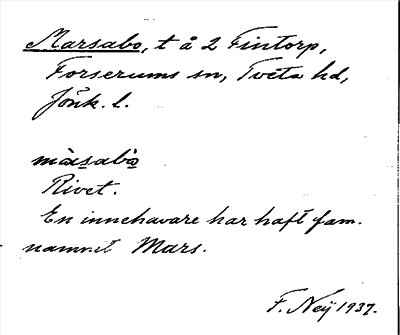 Marsabo, t å 2 Fintorp,
Forserums sn, Tveta hd,
Jönk. l.
màsabò
Rivet.
En innehavare har haft fam.
namnet Mars.
F. Neij 1937.